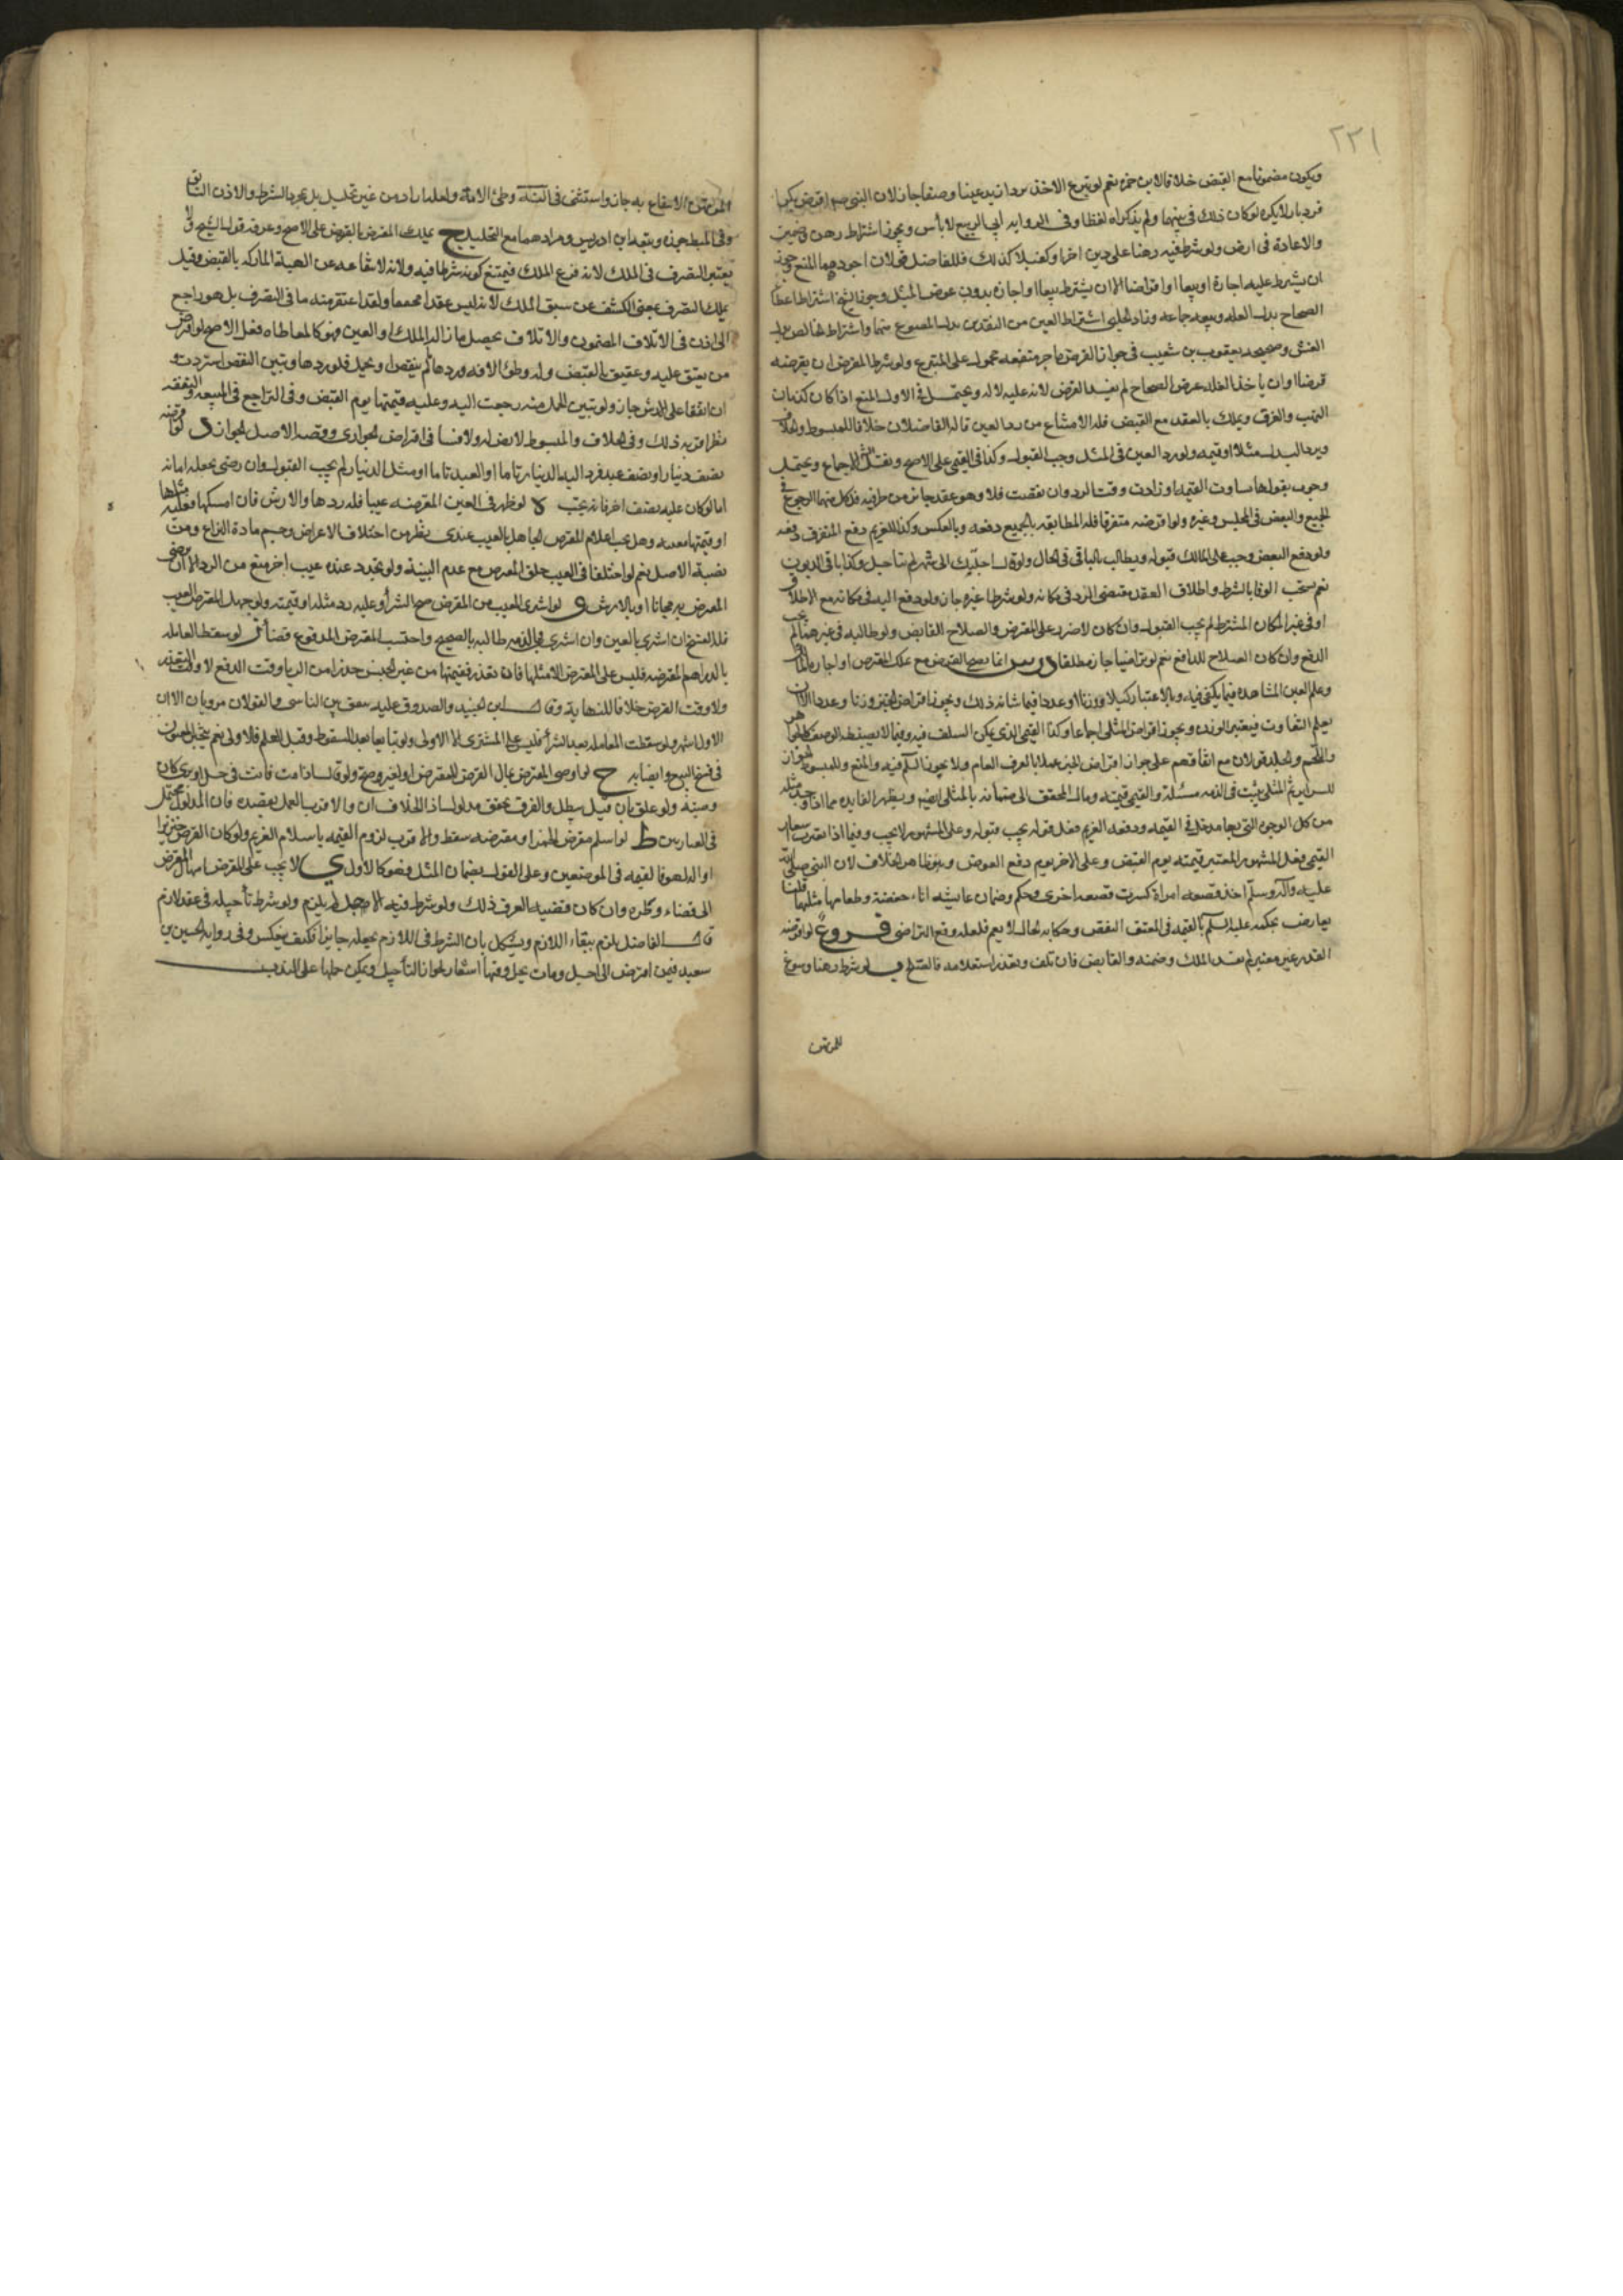 ٢٣١
ويكون مضمونا مع القبض خلافا لابن حمزه نعم لو تبرع الاخذ برد ازيد عينا وصفا جاز لان النبي صم اقترض بكرا
فرد بازلا يكره لو كان ذلك في نيتهما ولم يذكراه لفظا وفي الروايه ابي الربيع لا بأس ويجوز اشتراط رهن وضمين
والاعادة في ارض ولو شرط فيه رهنا على دين اخر او كفيلا كذلك فللفاضل قولان اجودهما المنع وجوز
ان يشترط عليه اجارة او بيعا او اقراضا الا ان يشترط بيعا او اجازه بدون عوض المثل وجوز الشيخ اشتراط اعطا
الصحاح بدل الغله وتبعه جماعه وزاد الحلبي اشتراط العين من النقدين بدل المصوغ منهما واشتراط الخالص بدل
الغش وصحيحه يعقوب بن شعيب في جواز القرض ما جر منفعه محموله على التبرع ولو شرط المقرض ان يقرضه
قرضا او ان ياخذ الغله عرض الصحاح لم يفسد القرض لانه عليه لا له ويحتمل في الاول المنع اذا كان كزمان
النهب والغرق ويملك بالعقد مع القبض فله الامتناع من رد العين قاله الفاضلان خلافا للمبسوط والخلاف
ويرد البدل مثلا او قيمه ولو رد العين في المثل وجب القبول وكذا في القيمي على الاصح ونقل الاجماع ويحتمل
وجوب قبولها ساوت القيمه او زادت وقت الرد وان نقصت فلا وهو عقد جائز من طرفيه فلكل منهما الرجوع في
الجميع والبعض في المجلس وغيره ولو اقرضه متفرقا فله المطالبه بالجميع دفعه وبالعكس وكذا للغريم دفع المتفرق دفعه
ولو دفع البعض وجب على المالك قبوله ويطالب بالباقي في الحال ولو قال اجلتك الى شهر لم يتاجل وكذا باقي الديون
نعم يستحب الوفا بالشرط واطلاق العقد يقتضي الرد في مكانه ولو شرطا غيره جاز ولو دفع اليه في مكانه مع الاطلاق
او في غير المكان المشترط لم يجب القبول وان كان لا ضرر على المقترض والصلاح للقابض ولو طالبه في غيرهما لم يجب
الدفع وان كان الصلاح للدافع نعم لو تراضيا جاز مطلقا درس انما يصح القرض مع ملك المقرض او اجازه المالك
وعلم العين المشاهده فيما يكفي فيه وبالاعتبار كيلا ووزنا او عددا فيما شانه ذلك ويجوز اقراض الخبز وزنا وعددا الا ان
يعلم التفاوت فيعتبر الوزن ويجوز اقراض المثلي اجماعا وكذا القيمي الذي يمكن السلف فيه وفيما لا يضبطه الوصف كالجواهر
واللحم والجلد قولان مع اتفاقهم على جواز اقراض الخبز عملا بالعرف العام ولا يجوز السلم فيه والمنع وللمبسوط الجواز
للسراير ثم المثلي يثبت في الذمه مثله والقيمي قيمته ومال المحقق الى ضمانه بالمثل ايضا ويظهر الفايده مما اذا وجد مثله
من كل الوجوه التي بها مدخل في القيمه ودفعه الغريم فعل قوله يجب قبوله وعلى المشهور لا يجب وفيما اذا تغيرت اسعار
القيمي فعل المشهور المعتبر قيمته يوم القبض وعلى الاخر يوم دفع العوض وهو ظاهر الخلاف لان النبي صلى الله
عليه وآله وسلم اخذ قصعه امراة كسرت قصعه اخرى وحكم وضمان عائشه اناء حفصة وطعامها مثلهما قلنا
يعارض بحكمه عليه السلم بالقيمه في المعتق الشقص وحكايه الحال لا يعم فلعله وقع التراضي فروع آ لو اقرضه
القدر غير معتبر لم يفد الملك وضمنه والقابض فان تلف وتعذر استعلامه فالصلح ب لو شرط رهنا وسوغ
للمرتهن
المرتهن الانتفاع به جاز واستثنى في النهايه وطئ الامه ولعله اراد من غير تحليل بل بمجرد الشرط والاذن السابق
وفي المبسوط جوزه وتبعه ابن ادريس ومرادهما مع التحليل ج يملك المقرض بالقرض على الاصح وعرفه قول الشيخ ولا
يعتبر التصرف في الملك لانه فرع الملك فيمتنع كونه شرطا فيه ولانه لا يتقاعد عن الهبة المملكه بالقبض وقيل
يملك التصرف بمعنى الكشف عن سبق الملك لانه ليس عقدا محضا ولقد اعتفر منه ما في الصرف بل هو راجع
الى اذن في الاتلاف المضمون والاتلاف يحصل بازاله الملك او العين فهو كالمعاطاه فعل الاصح لو اقرض
من ينعتق عليه وعتيق بالقبض وله وطئ الامه وردها ما لم ينقص او يحبل فلو ردها وتبين النقص استردت و
ان اتفقا على الارش جاز ولو تبين الحمل منه رجعت اليه وعليه قيمتها يوم القبض وفي التراجع في المنفعه والنفقه
نظر اقربه ذلك وفي الخلاف والمبسوط لا نص لنا ولا فتيا في اقراض الجواري وقضيه الاصل الجواز د لو اقرضه
نصف دينار او نصف عبد فرد اليه الدينار تاما او العبد تاما او مثل الدينار لم يجب القبول وان رضي بجعله امانه
اما لو كان عليه نصف اخر فانه يجب ه لو ظهر في العين المقرضه عيبا فله ردها والارش فان امسكها فعليه مثلها
او قيمتها معيبه وهل يجب اعلام المقترض الجاهل بالعيب عندي نظر من اختلاف الاعراض وحسم مادة النزاع ومن
قضية الاصل نعم لو اختلفا في العيب حلف المقرض مع عدم البينة ولو تجدد عنده عيب اخر منع من الرد الا ان يرضى
المقرض به مجانا او بالارش و لو اشترى المعيب من المقرض صح الشرا وعليه رد مثله او قيمته ولو جهل المقترض العيب
فله الفسخ ان اشترى بالعين وان اشترى في الذمه طالبه بالصحيح واحتسب المقرض المدفوع قضاء ز لو سقط المعامله
بالدراهم المقرضه فليس على المقترض الا مثلها فان تعذر فقيمتها من غير الجنس حذرا من الربا وقت الدفع لا وقت التعذر
ولا وقت القرض خلافا للنهايه وقال ابن الجنيد والصدوق عليه ينفق بين الناس والقولان مرويان الا ان
الاول اشهر ولو سقطت المعامله بعد الشرا فليس على المشتري الا الاولى ولو تبايعا بعد السقوط وقبل العلم فالاولى نعم يتخير المغبون
في فسخ البيع وامضايه ح لو اوصى المقرض بمال القرض للمقرض او لغيره وصح ولو قال اذا مت فانت في حل او بري كان
وصيه ولو علق بان قيل يبطل والفرق تحقق مدلول اذا بخلاف ان والاقرب العمل بقصده فان المدلول محتمل
في العبارتين ط لو اسلم مقرض الخمر او مقترضه سقط والاقرب لزوم القيمه باسلام الغريم ولو كان القرض خنزيرا
او اله لهو فالقيمه في الموضعين وعلى القول بضمان المثل فهو كالاول ي لا يجب على المقرض امهال المقترض
الى قضاء وطره وان كان قضيه العرف ذلك ولو شرط فيه الاجل لم يلزم ولو شرط تأجيله في عقد لازم
قال الفاضل يلزم ببقاء اللازم ويشكل بان الشرط في اللازم يجعله جايزا فكيف ينعكس وفي روايه الحسين بن
سعيد فيمن اقرض الى اجل ومات يحل وفيها اشعار بجواز التأجيل ويمكن حملها على الندب